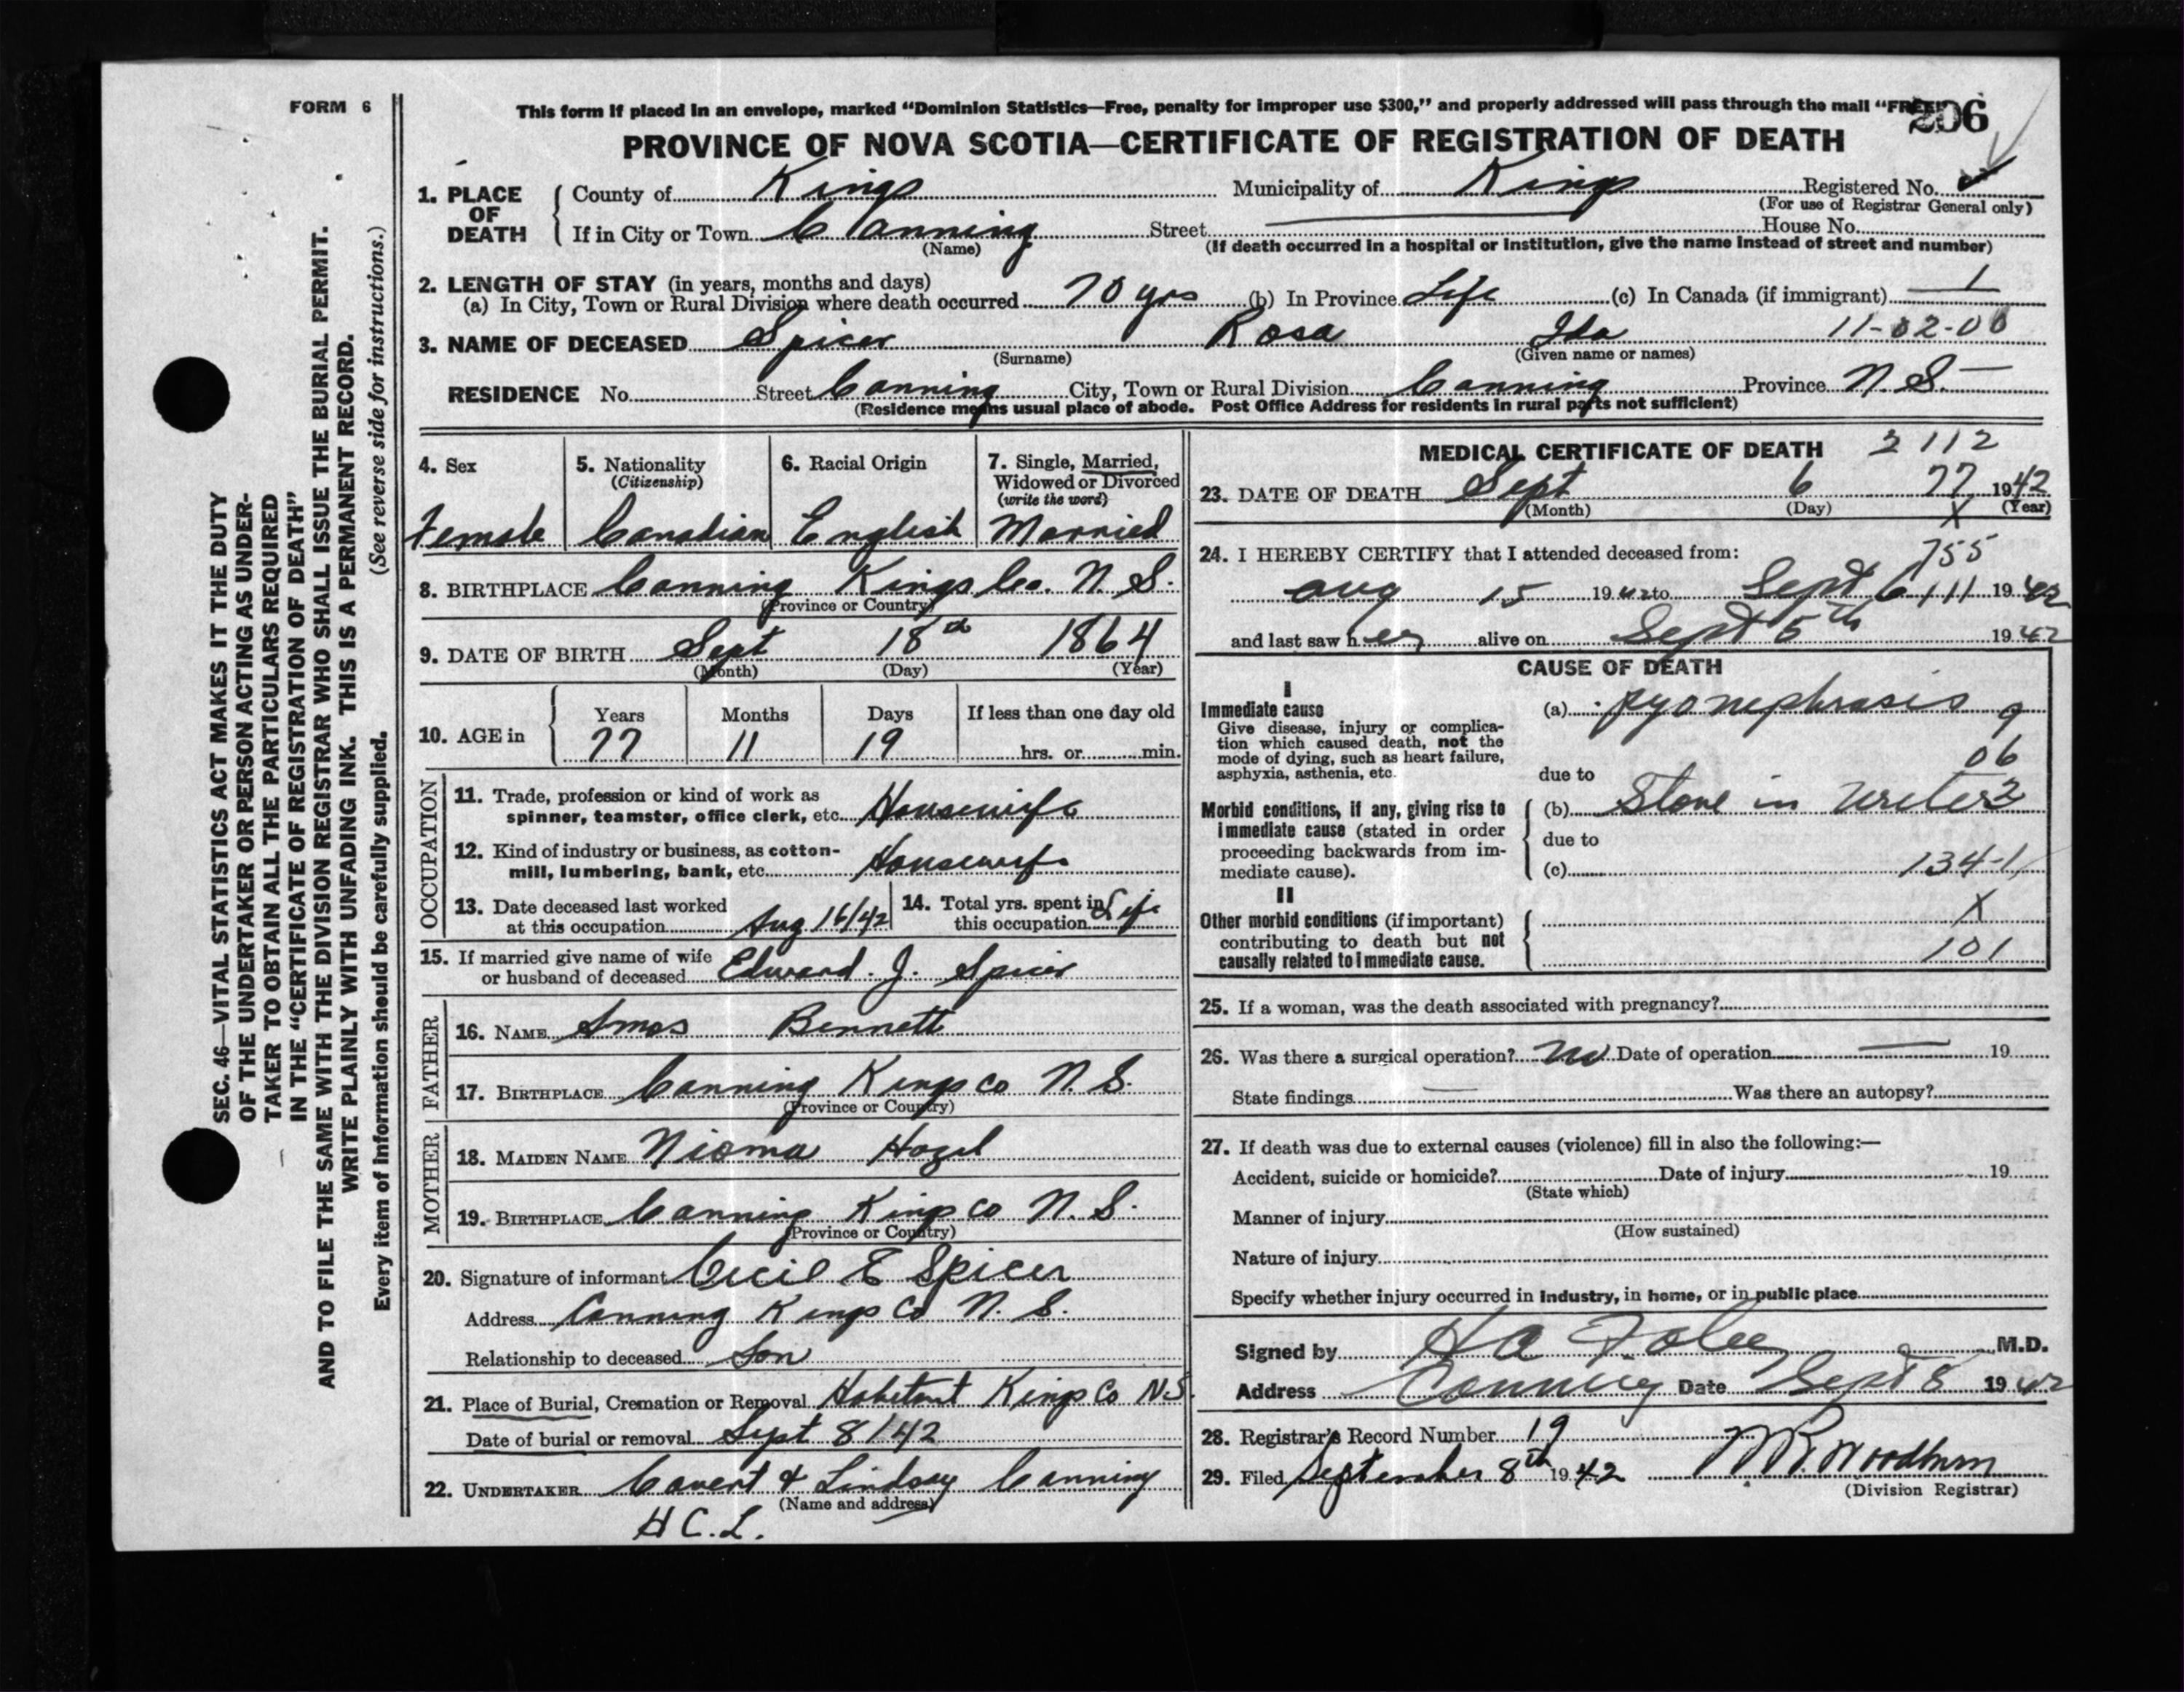 FORM 6
This form if placed in an envelope, marked “Dominion Statistics—Free, penalty for improper use $300,” and properly addressed will pass through the mail “FREE”
206
PROVINCE OF NOVA SCOTIA—CERTIFICATE OF REGISTRATION OF DEATH
1. PLACE OF DEATH County of Kings Municipality of Kings Registered No.
(For use of Registrar General only)
If in City or Town Canning Street House No.
(Name) (If death occurred in a hospital or institution, give the name instead of street and number)
2. LENGTH OF STAY (in years, months and days)
(a) In City, Town or Rural Division where death occurred 70 yrs (b) In Province Life (c) In Canada (if immigrant)
3. NAME OF DECEASED Spicer Rosa Ida 11-02-00
(Surname) (Given name or names)
RESIDENCE No. Street Canning City, Town or Rural Division Canning Province N.S.
(Residence means usual place of abode. Post Office Address for residents in rural parts not sufficient)
4. Sex
Female
5. Nationality
(Citizenship)
Canadian
6. Racial Origin
English
7. Single, Married,
Widowed or Divorced
(write the word)
Married
8. BIRTHPLACE Canning Kings Co. N. S.
(Province or Country)
9. DATE OF BIRTH Sept 18th 1864
(Month) (Day) (Year)
10. AGE in Years Months Days If less than one day old
77 11 19 hrs. or min.
OCCUPATION
11. Trade, profession or kind of work as
spinner, teamster, office clerk, etc. Housewife
12. Kind of industry or business, as cotton-
mill, lumbering, bank, etc. Housewife
13. Date deceased last worked
at this occupation Aug 16/42
14. Total yrs. spent in
this occupation Life
15. If married give name of wife
or husband of deceased Edward. J. Spicer
FATHER
16. NAME Amos Bennett
17. BIRTHPLACE Canning Kings Co N. S.
(Province or Country)
MOTHER
18. MAIDEN NAME Nioma Hazel
19. BIRTHPLACE Canning Kings Co N. S.
(Province or Country)
20. Signature of informant Cecil E Spicer
Address Canning Kings Co N. S.
Relationship to deceased Son
21. Place of Burial, Cremation or Removal Habitant Kings Co N.S.
Date of burial or removal Sept 8/42
22. UNDERTAKER Covert & Lindsay Canning
(Name and address)
H C. L.
MEDICAL CERTIFICATE OF DEATH 2112
23. DATE OF DEATH Sept 6 77 1942
(Month) (Day) X (Year)
24. I HEREBY CERTIFY that I attended deceased from: 755
Aug 15 1942 to Sept 6 111 1942
and last saw her alive on Sept 5th 1942
CAUSE OF DEATH
I
Immediate cause
Give disease, injury or complica-
tion which caused death, not the
mode of dying, such as heart failure,
asphyxia, asthenia, etc.
(a) pyonephrosis 9
06
due to
Morbid conditions, if any, giving rise to
immediate cause (stated in order
proceeding backwards from im-
mediate cause).
(b) Stone in Ureter 2
due to
(c) 134-1
II
Other morbid conditions (if important)
contributing to death but not
causally related to immediate cause.
X
101
25. If a woman, was the death associated with pregnancy?
26. Was there a surgical operation? no Date of operation 19
State findings Was there an autopsy?
27. If death was due to external causes (violence) fill in also the following:—
Accident, suicide or homicide? Date of injury 19
(State which)
Manner of injury
(How sustained)
Nature of injury
Specify whether injury occurred in industry, in home, or in public place
Signed by M.D.
Address Canning Date Sept 8 1942
28. Registrar's Record Number 19
29. Filed September 8th 1942 Woodburn
(Division Registrar)
SEC. 46—VITAL STATISTICS ACT MAKES IT THE DUTY
OF THE UNDERTAKER OR PERSON ACTING AS UNDER-
TAKER TO OBTAIN ALL THE PARTICULARS REQUIRED
IN THE “CERTIFICATE OF REGISTRATION OF DEATH”
AND TO FILE THE SAME WITH THE DIVISION REGISTRAR WHO SHALL ISSUE THE BURIAL PERMIT.
WRITE PLAINLY WITH UNFADING INK. THIS IS A PERMANENT RECORD.
Every item of information should be carefully supplied. (See reverse side for instructions.)